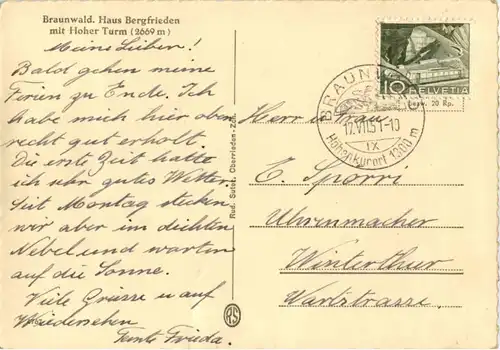 Braunwald. Haus Bergfrieden
mit Hoher Turm (2669 m)
Meine Lieben!
Bald gehen meine
Ferien zu Ende. Ich
habe mich hier oben
recht gut erholt.
Die erste Zeit hatte
ich sehr gutes Wetter.
Seit Montag stecken
wir aber im dichten
Nebel und warten
auf die Sonne.
Viele Grüsse u auf
Wiedersehen
Tante Frieda.
Rud. Suter, Oberrieden-Zch.
RS
10 HELVETIA
BRAUNWALD
17.VII.51-10
IX
Höhenkurort 1300 m
bezw. 20 Rp.
Herr u Frau
E. Spörri
Uhrenmacher
Winterthur
Wartstrasse.